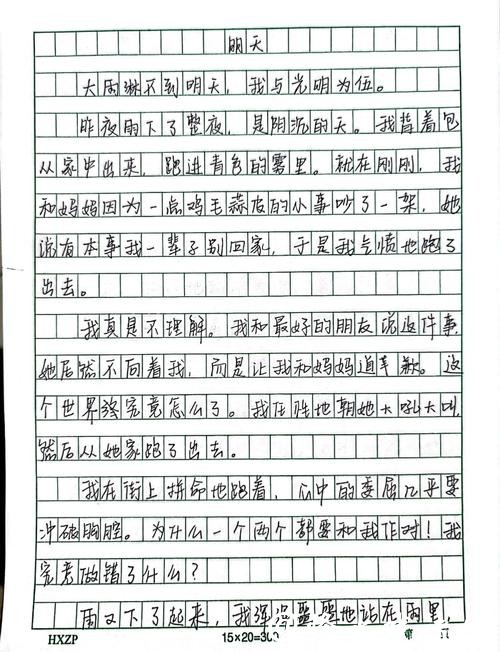 明天
大雨淋不到明天，我与光明为伍。
昨夜雨下了整夜，是阴沉的天。我背着包
从家中出来，跑进青色的雾里。就在刚刚，我
和妈妈因为一点鸡毛蒜皮的小事吵了一架，她
说有本事我一辈子别回家，于是我气愤地跑了
出去。
我真是不理解。我和最好的朋友说这件事，
她居然不向着我，而是让我和妈妈道歉。这
个世界终究怎么了。我任性地朝她大吼大叫，
然后从她家跑了出去。
我在街上拼命地跑着，心中的委屈几乎要
冲破胸腔。为什么一个两个都要和我作对！我
究竟做错了什么？
雨又下了起来，我浑身湿地站在雨里，
HXZP
15×20=300